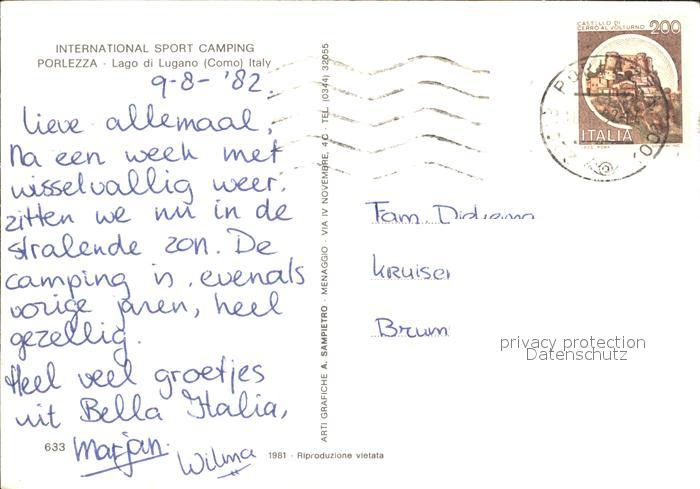 INTERNATIONAL SPORT CAMPING
PORLEZZA - Lago di Lugano (Como) Italy
9-8-'82.
Lieve allemaal,
Na een week met
wisselvallig weer,
zitten we nu in de
stralende zon. De
camping is, evenals
vorige jaren, heel
gezellig.
Heel veel groetjes
uit Bella Italia,
Marjan.
Wilma
633
1981 - Riproduzione vietata
ARTI GRAFICHE A. SAMPIETRO - MENAGGIO - VIA IV NOVEMBRE, 4C - TEL. (0344) 32055
CASTELLO DI
CERRO AL VOLTURNO
200
ITALIA
Fam. Didema
Kruiser
Brum
privacy protection
Datenschutz